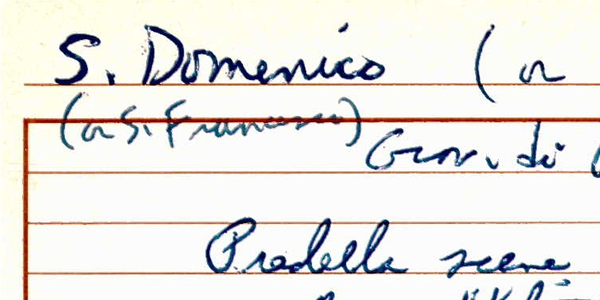 S. Domenico (or
(or S. Francesco)
Giov. di
Predella scene